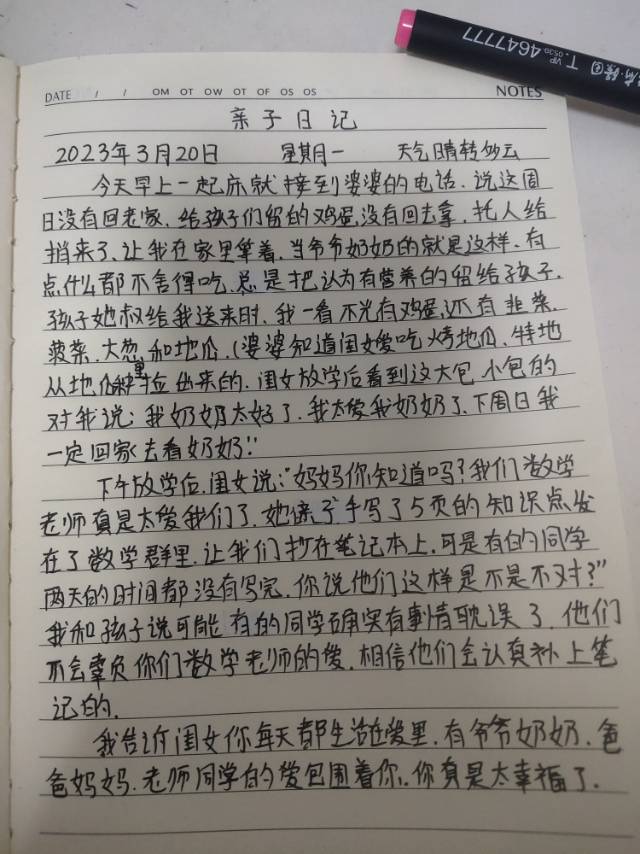 VIP 4647777
T.0530
DATE / / OM OT OW OT OF OS OS NOTES
亲子日记
2023年3月20日 星期一 天气晴转多云
今天早上一起床就接到婆婆的电话.说这周
日没有回老家.给孩子们留的鸡蛋没有回去拿.托人给
捎来了.让我在家里等着.当爷爷奶奶的就是这样.有
点什么都不舍得吃.总是把认为有营养的留给孩子.
孩子她叔给我送来时.我一看不光有鸡蛋还有韭菜.
菠菜.大葱和地瓜.(婆婆知道闺女爱吃烤地瓜.特地
从地瓜种里捡出来的.闺女放学后看到这大包.小包的
对我说:我奶奶太好了.我太爱我奶奶了.下周日我
一定回家去看奶奶!"
下午放学后.闺女说:"妈妈你知道吗?我们数学
老师真是太爱我们了.她亲手写了5页的知识点发
在了数学群里.让我们抄在笔记本上.可是有的同学
两天的时间都没有写完.你说他们这样是不是不对?"
我和孩子说可能有的同学确实有事情耽误了.他们
不会辜负你们数学老师的爱.相信他们会认真补上笔
记的.
我告诉闺女你每天都生活在爱里.有爷爷奶奶.爸
爸妈妈.老师同学的爱包围着你.你真是太幸福了.